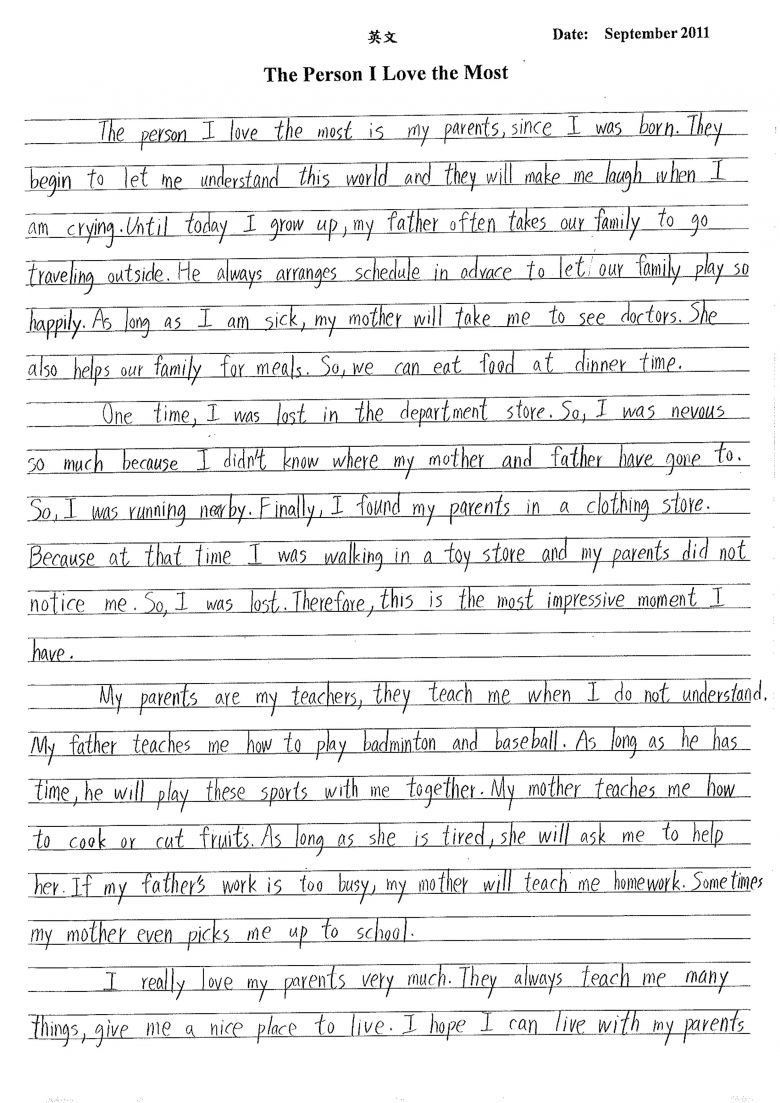 英文
Date: September 2011
The Person I Love the Most
The person I love the most is my parents, since I was born. They
begin to let me understand this world and they will make me laugh when I
am crying. Until today I grow up, my father often takes our family to go
traveling outside. He always arranges schedule in advace to let our family play so
happily. As long as I am sick, my mother will take me to see doctors. She
also helps our family for meals. So, we can eat food at dinner time.
One time, I was lost in the department store. So, I was nevous
so much because I didn't know where my mother and father have gone to.
So, I was running nearby. Finally, I found my parents in a clothing store.
Because at that time I was walking in a toy store and my parents did not
notice me. So, I was lost. Therefore, this is the most impressive moment I
have.
My parents are my teachers, they teach me when I do not understand.
My father teaches me how to play badminton and baseball. As long as he has
time, he will play these sports with me together. My mother teaches me how
to cook or cut fruits. As long as she is tired, she will ask me to help
her. If my father's work is too busy, my mother will teach me homework. Sometimes
my mother even picks me up to school.
I really love my parents very much. They always teach me many
things, give me a nice place to live. I hope I can live with my parents